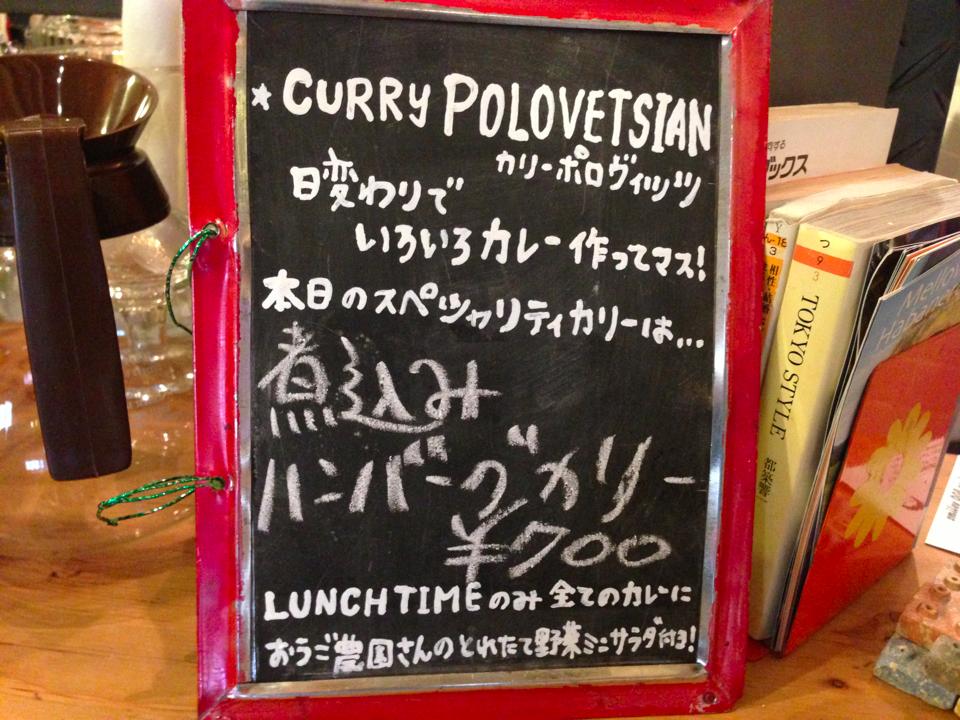 ★ CURRY POLOVETSIAN
カリーポロヴィッツ
日変わりで
いろいろカレー作ってマス!
本日のスペシャリティカリーは...
煮込み
ハンバーグカリー
¥700
LUNCHTIMEのみ全てのカレーに
おうご農園さんのとれたて野菜ミニサラダ付ヨ!
ックス
つ
9
3
TOKYO STYLE
都築響一
Mellow